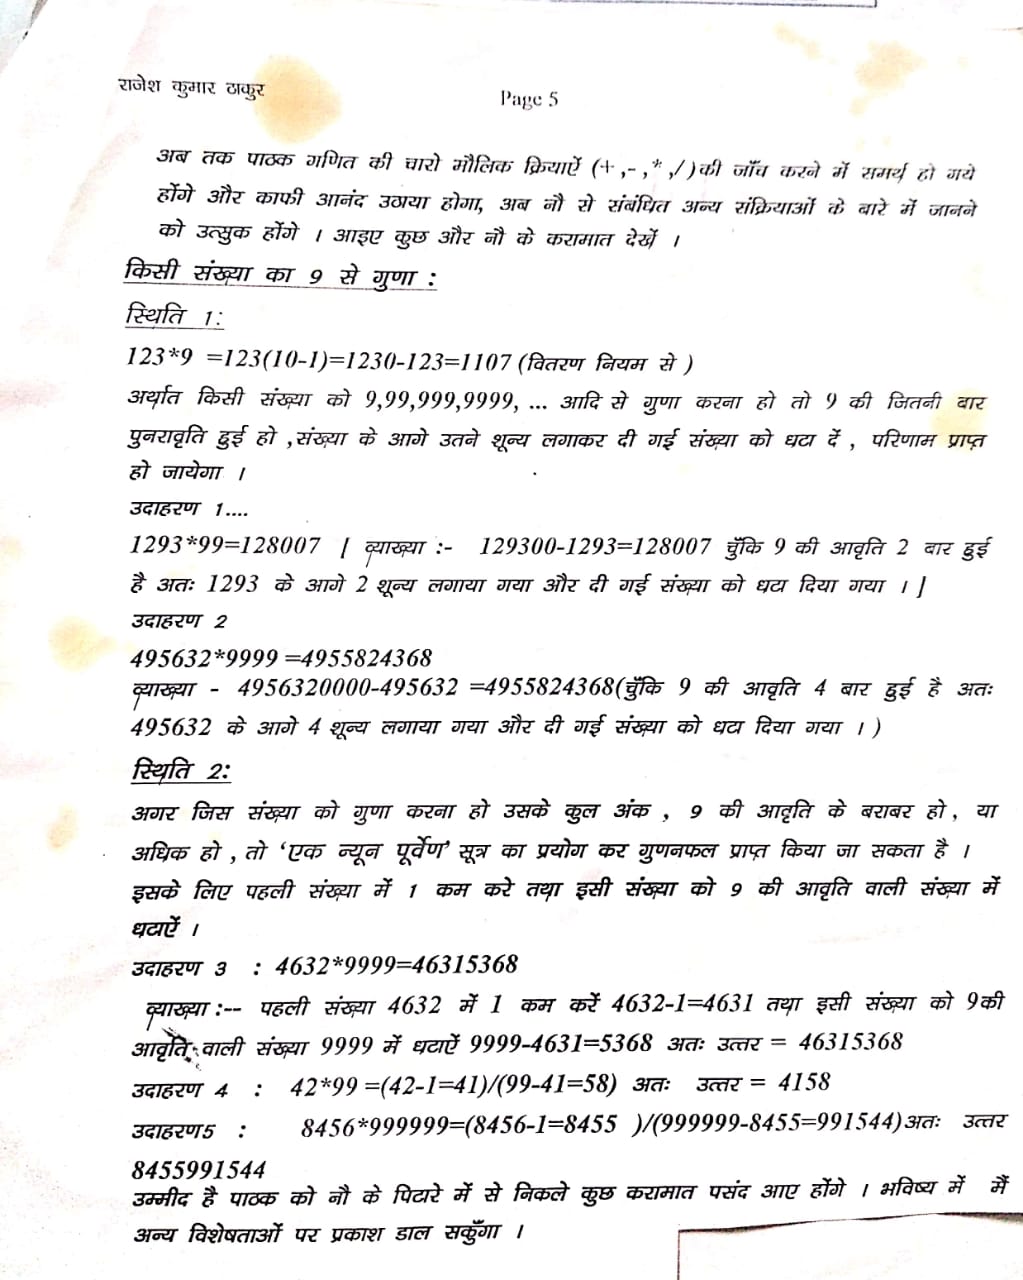 राजेश कुमार ठाकुर
Page 5
अब तक पाठक गणित की चारो मौलिक क्रियाऐं (+,-,*,/)की जाँच करने में समर्थ हो गये
होंगे और काफी आनंद उठाया होगा, अब नौ से संबंधित अन्य संक्रियाओं के बारे में जानने
को उत्सुक होंगे । आइए कुछ और नौ के करामात देखें ।
किसी संख्या का 9 से गुणा :
स्थिति 1:
123*9 =123(10-1)=1230-123=1107 (वितरण नियम से )
अर्थात किसी संख्या को 9,99,999,9999, ... आदि से गुणा करना हो तो 9 की जितनी बार
पुनरावृति हुई हो ,संख्या के आगे उतने शून्य लगाकर दी गई संख्या को घटा दें , परिणाम प्राप्त
हो जायेगा ।
उदाहरण 1....
1293*99=128007 [ व्याख्या :- 129300-1293=128007 चुँकि 9 की आवृति 2 बार हुई
है अतः 1293 के आगे 2 शून्य लगाया गया और दी गई संख्या को घटा दिया गया । ]
उदाहरण 2
495632*9999 =4955824368
व्याख्या - 4956320000-495632 =4955824368(चुँकि 9 की आवृति 4 बार हुई है अतः
495632 के आगे 4 शून्य लगाया गया और दी गई संख्या को घटा दिया गया । )
स्थिति 2:
अगर जिस संख्या को गुणा करना हो उसके कुल अंक , 9 की आवृति के बराबर हो , या
अधिक हो , तो ‘एक न्यून पूर्वेण’ सूत्र का प्रयोग कर गुणनफल प्राप्त किया जा सकता है ।
इसके लिए पहली संख्या में 1 कम करे तथा इसी संख्या को 9 की आवृति वाली संख्या में
घटाऐं ।
उदाहरण 3 : 4632*9999=46315368
व्याख्या :-- पहली संख्या 4632 में 1 कम करें 4632-1=4631 तथा इसी संख्या को 9की
आवृति वाली संख्या 9999 में घटाऐं 9999-4631=5368 अतः उत्तर = 46315368
उदाहरण 4 : 42*99 =(42-1=41)/(99-41=58) अतः उत्तर = 4158
उदाहरण5 : 8456*999999=(8456-1=8455 )/(999999-8455=991544)अतः उत्तर
8455991544
उम्मीद है पाठक को नौ के पिटारे में से निकले कुछ करामात पसंद आए होंगे । भविष्य में मैं
अन्य विशेषताओं पर प्रकाश डाल सकुँगा ।